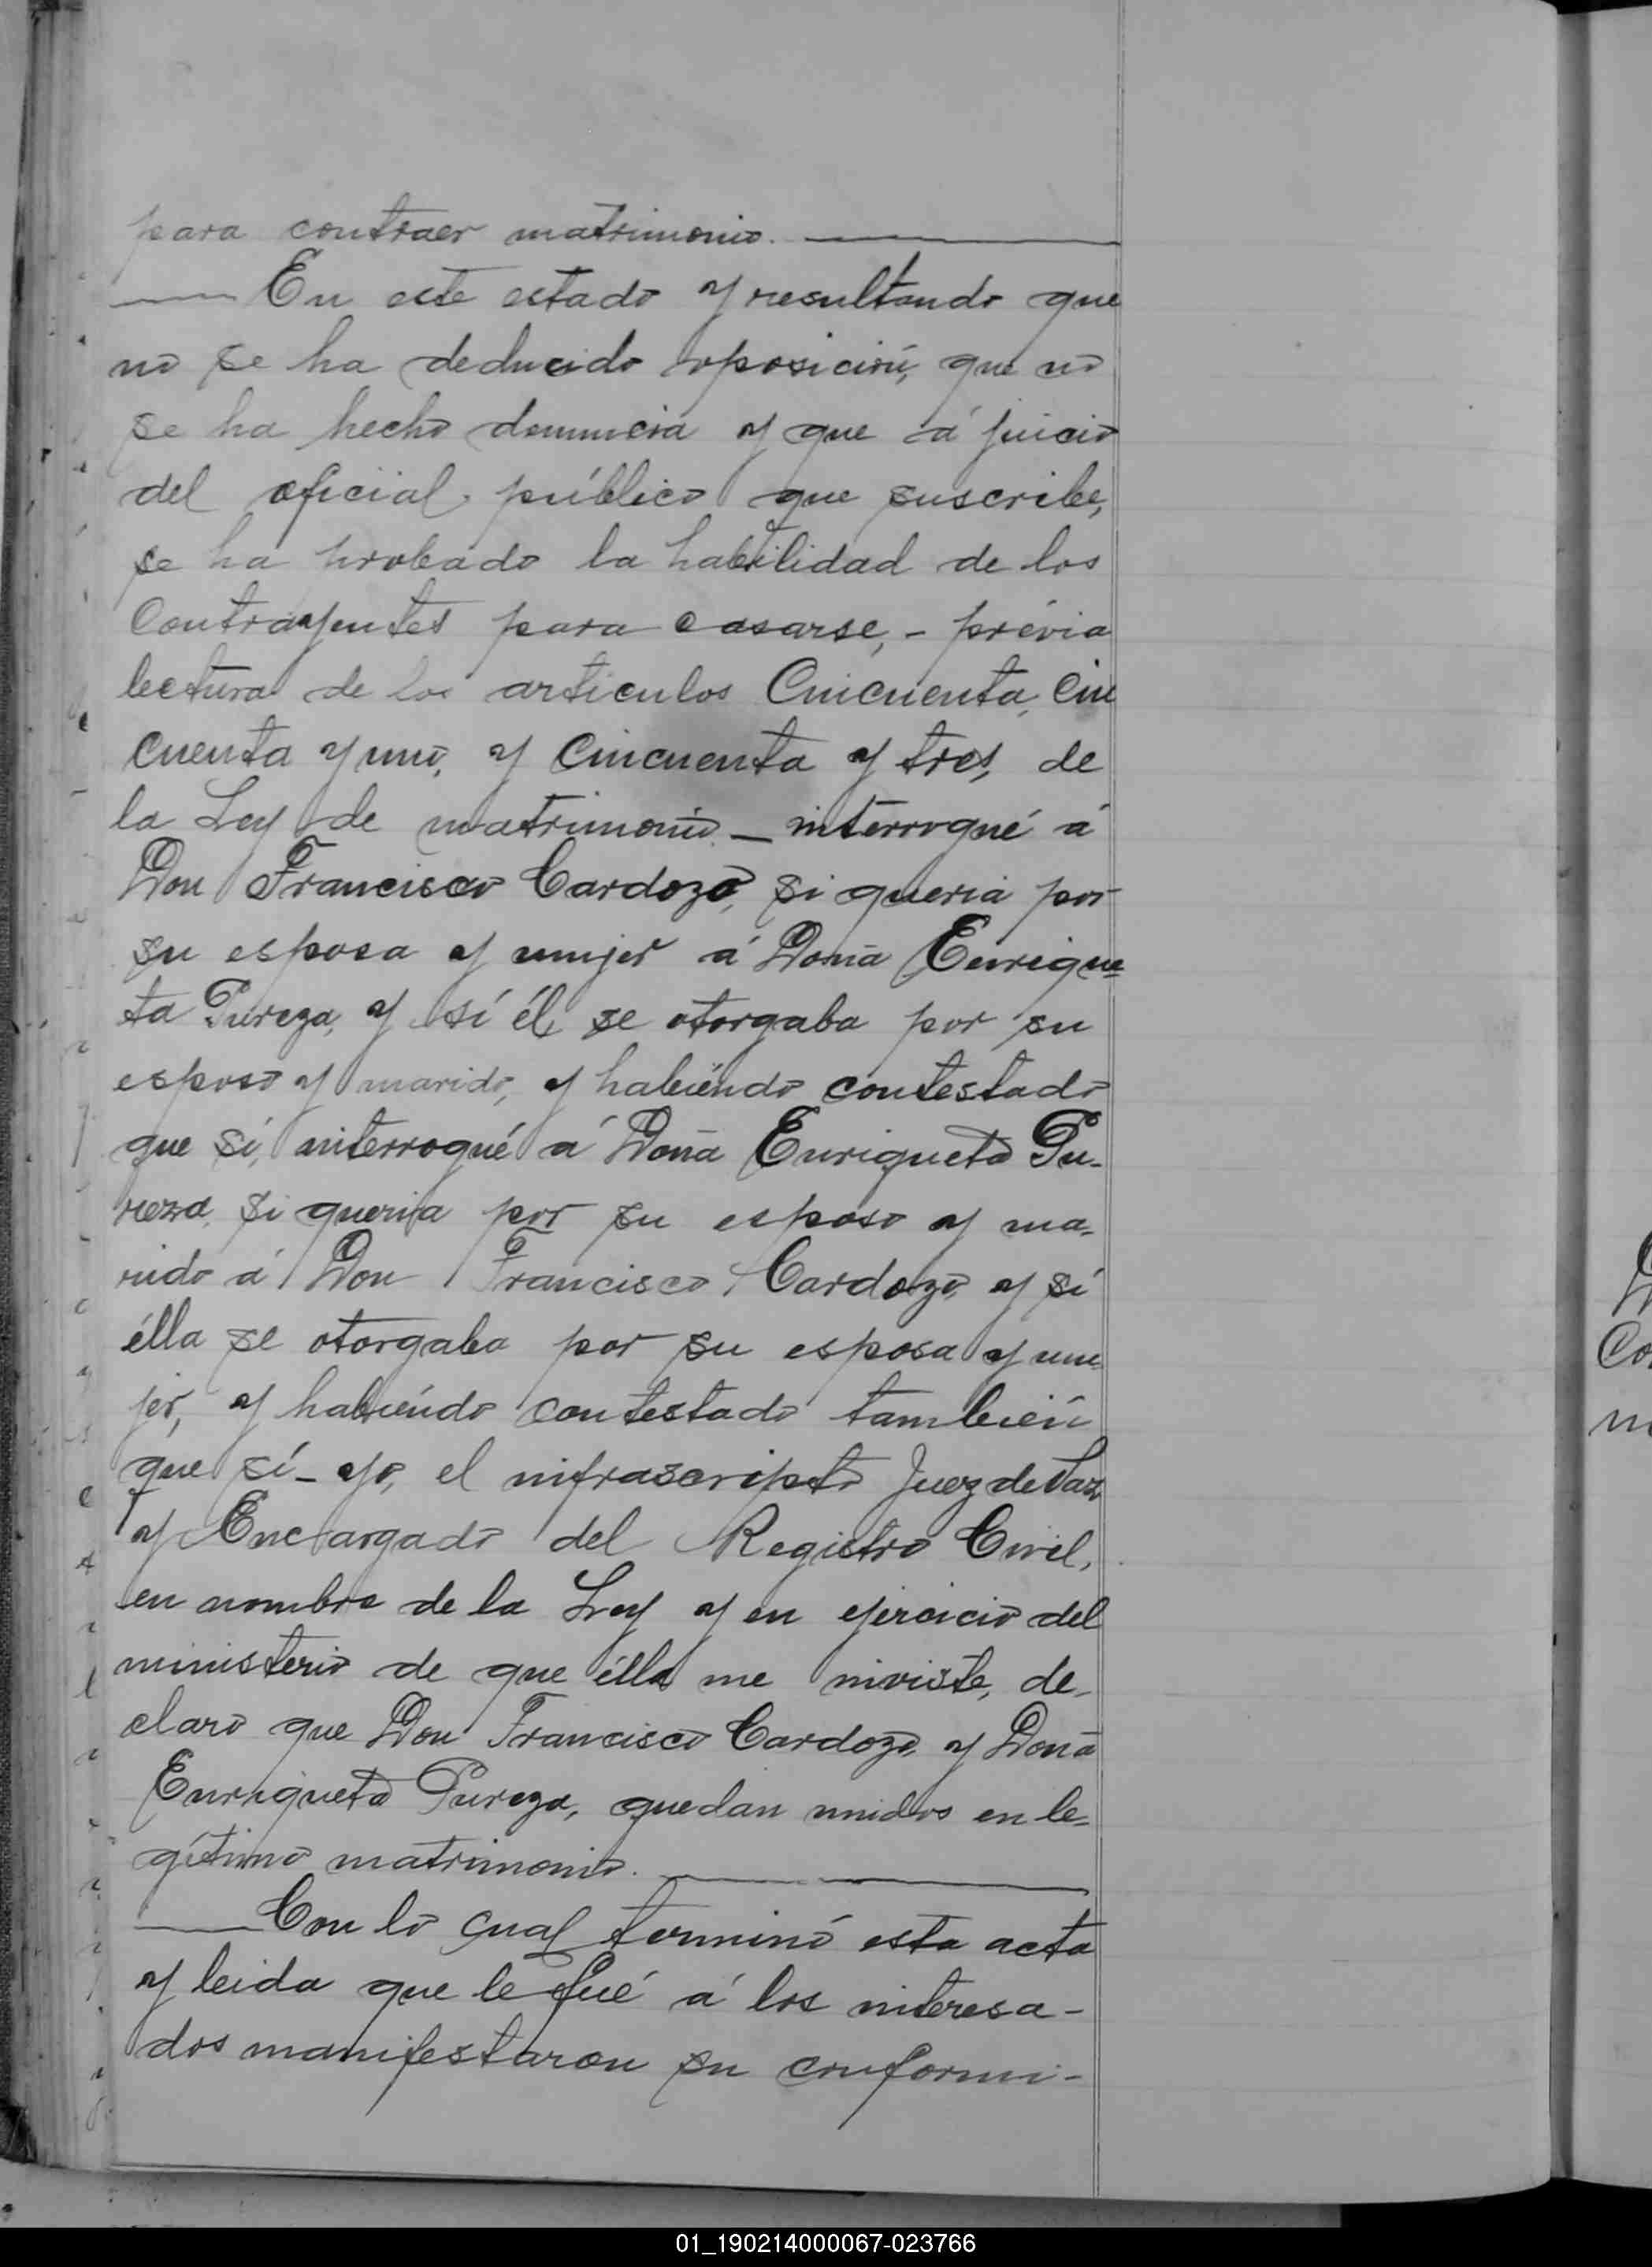 para contraer matrimonio.
En este estado y resultando que
no se ha deducido oposición, que no
se ha hecho denuncia y que á juicio
del oficial público que suscribe,
se ha probado la habilidad de los
contrayentes para casarse, - prévia
lectura de los articulos Cincuenta, Cin
cuenta y uno, y Cincuenta y tres, de
la Ley de matrimonio - interrogué á
Don Francisco Cardozo, si queria por
su esposa y mujer á Doña Enrique=
ta Pureza, y sí él se otorgaba por su
esposo y marido, y habiéndo contestado
que sí, interrogué á Doña Enriqueta Pu-
reza, si queria por su esposo y ma-
rido á Don Francisco Cardozo, y sí
élla se otorgaba por su esposa y mu
jer, y habiéndo contestado tambien
que sí - yo, el infrascripto Juez de Paz
y Encargado del Registro Civil,
en nombre de la Ley y en ejercicio del
ministerio de que élla me inviste, de-
claro que Don Francisco Cardozo, y Doña
Enriqueta Pureza, quedan unidos en le-
gítimo matrimonio.
Con lo cual terminó esta acta
y leida que le fué á los interesa-
dos manifestaron su conformi-
Co
01_190214000067-023766